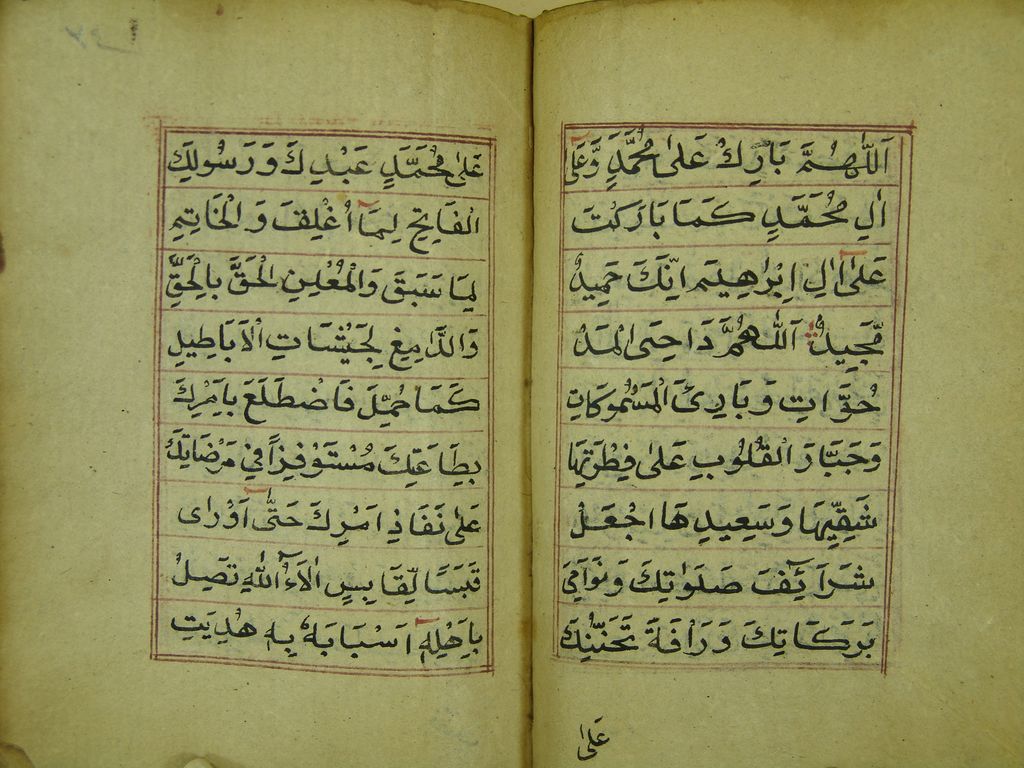 اَللّٰهُمَّ بَارِكْ عَلٰى مُحَمَّدٍ وَّعَلٰٓى
اٰلِ مُحَمَّدٍ كَمَا بَارَكْتَ
عَلٰٓى اٰلِ اِبْرٰهِيْمَ اِنَّكَ حَمِيْدٌ
مَّجِيْدٌ اَللّٰهُمَّ دَاحِىَ الْمَدْ
حُوَّاتِ وَبَارِئَ الْمَسْمُوكَاتِ
وَجَبَّارَ الْقُلُوبِ عَلٰى فِطْرَتِهَا
شَقِيِّهَا وَسَعِيدِهَا اجْعَلْ
شَرَآئِفَ صَلَوٰتِكَ وَنَوَامِىَ
بَرَكَاتِكَ وَرَافَةَ تَحَنُّنِكَ
عَلٰى
عَلٰى مُحَمَّدٍ عَبْدِكَ وَرَسُولِكَ
الْفَاتِحِ لِمَآ اُغْلِقَ وَالْخَاتِمِ
لِمَا سَبَقَ وَالْمُعْلِنِ الْحَقَّ بِالْحَقِّ
وَالدَّامِغِ لِجَيْشَاتِ الْاَبَاطِيلِ
كَمَا حُمِّلَ فَاضْطَلَعَ بِاَمْرِكَ
بِطَاعَتِكَ مُسْتَوْفِزًا فِي مَرْضَاتِكَ
عَلٰى نَفَاذِ اَمْرِكَ حَتّٰٓى اَوْرٰى
قَبَسًا لِّقَابِسٍ اٰلَآءُ اللّٰهِ تَصِلُ
بِاَهْلِهٖٓ اَسْبَابَهٗ بِهٖ هُدِيَتِ